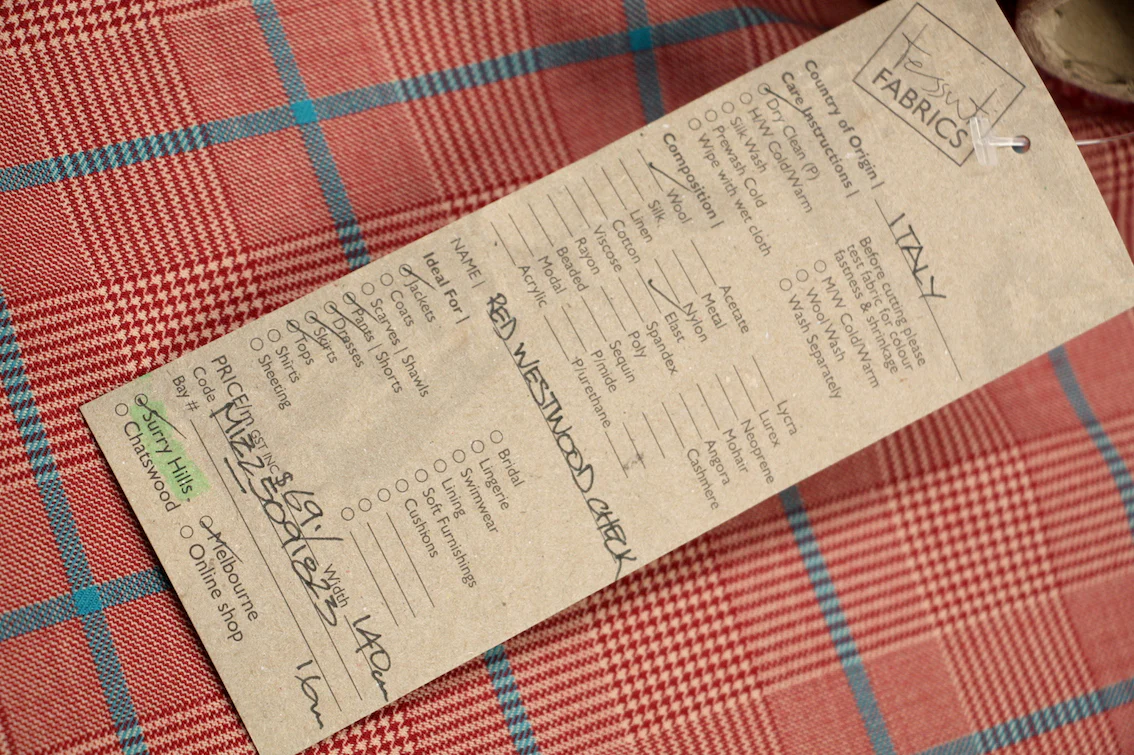 tessuti
FABRICS
Country of Origin | ITALY
Care Instructions |
Before cutting please
test fabric for colour
fastness & shrinkage
Dry Clean (P)
H/W Cold/Warm
M/W Cold/Warm
Silk Wash
Wool Wash
Prewash Cold
Wash Separately
Wipe with wet cloth
Composition |
Wool
Acetate
Lycra
Silk
Metal
Lurex
Linen
Nylon
Neoprene
Cotton
Elast
Mohair
Viscose
Spandex
Angora
Rayon
Poly
Cashmere
Beaded
Sequin
Modal
P/mide
Acrylic
P/urethane
NAME | RED WESTWOOD CHECK
Ideal For |
Jackets
Bridal
Coats
Lingerie
Scarves | Shawls
Swimwear
Pants | Shorts
Lining
Dresses
Soft Furnishings
Skirts
Cushions
Tops
Shirts
Sheeting
PRICE/m GST INC $ 69/ Width 140cm
Code
Bay # 16m
Surry Hills
Melbourne
Chatswood
Online shop